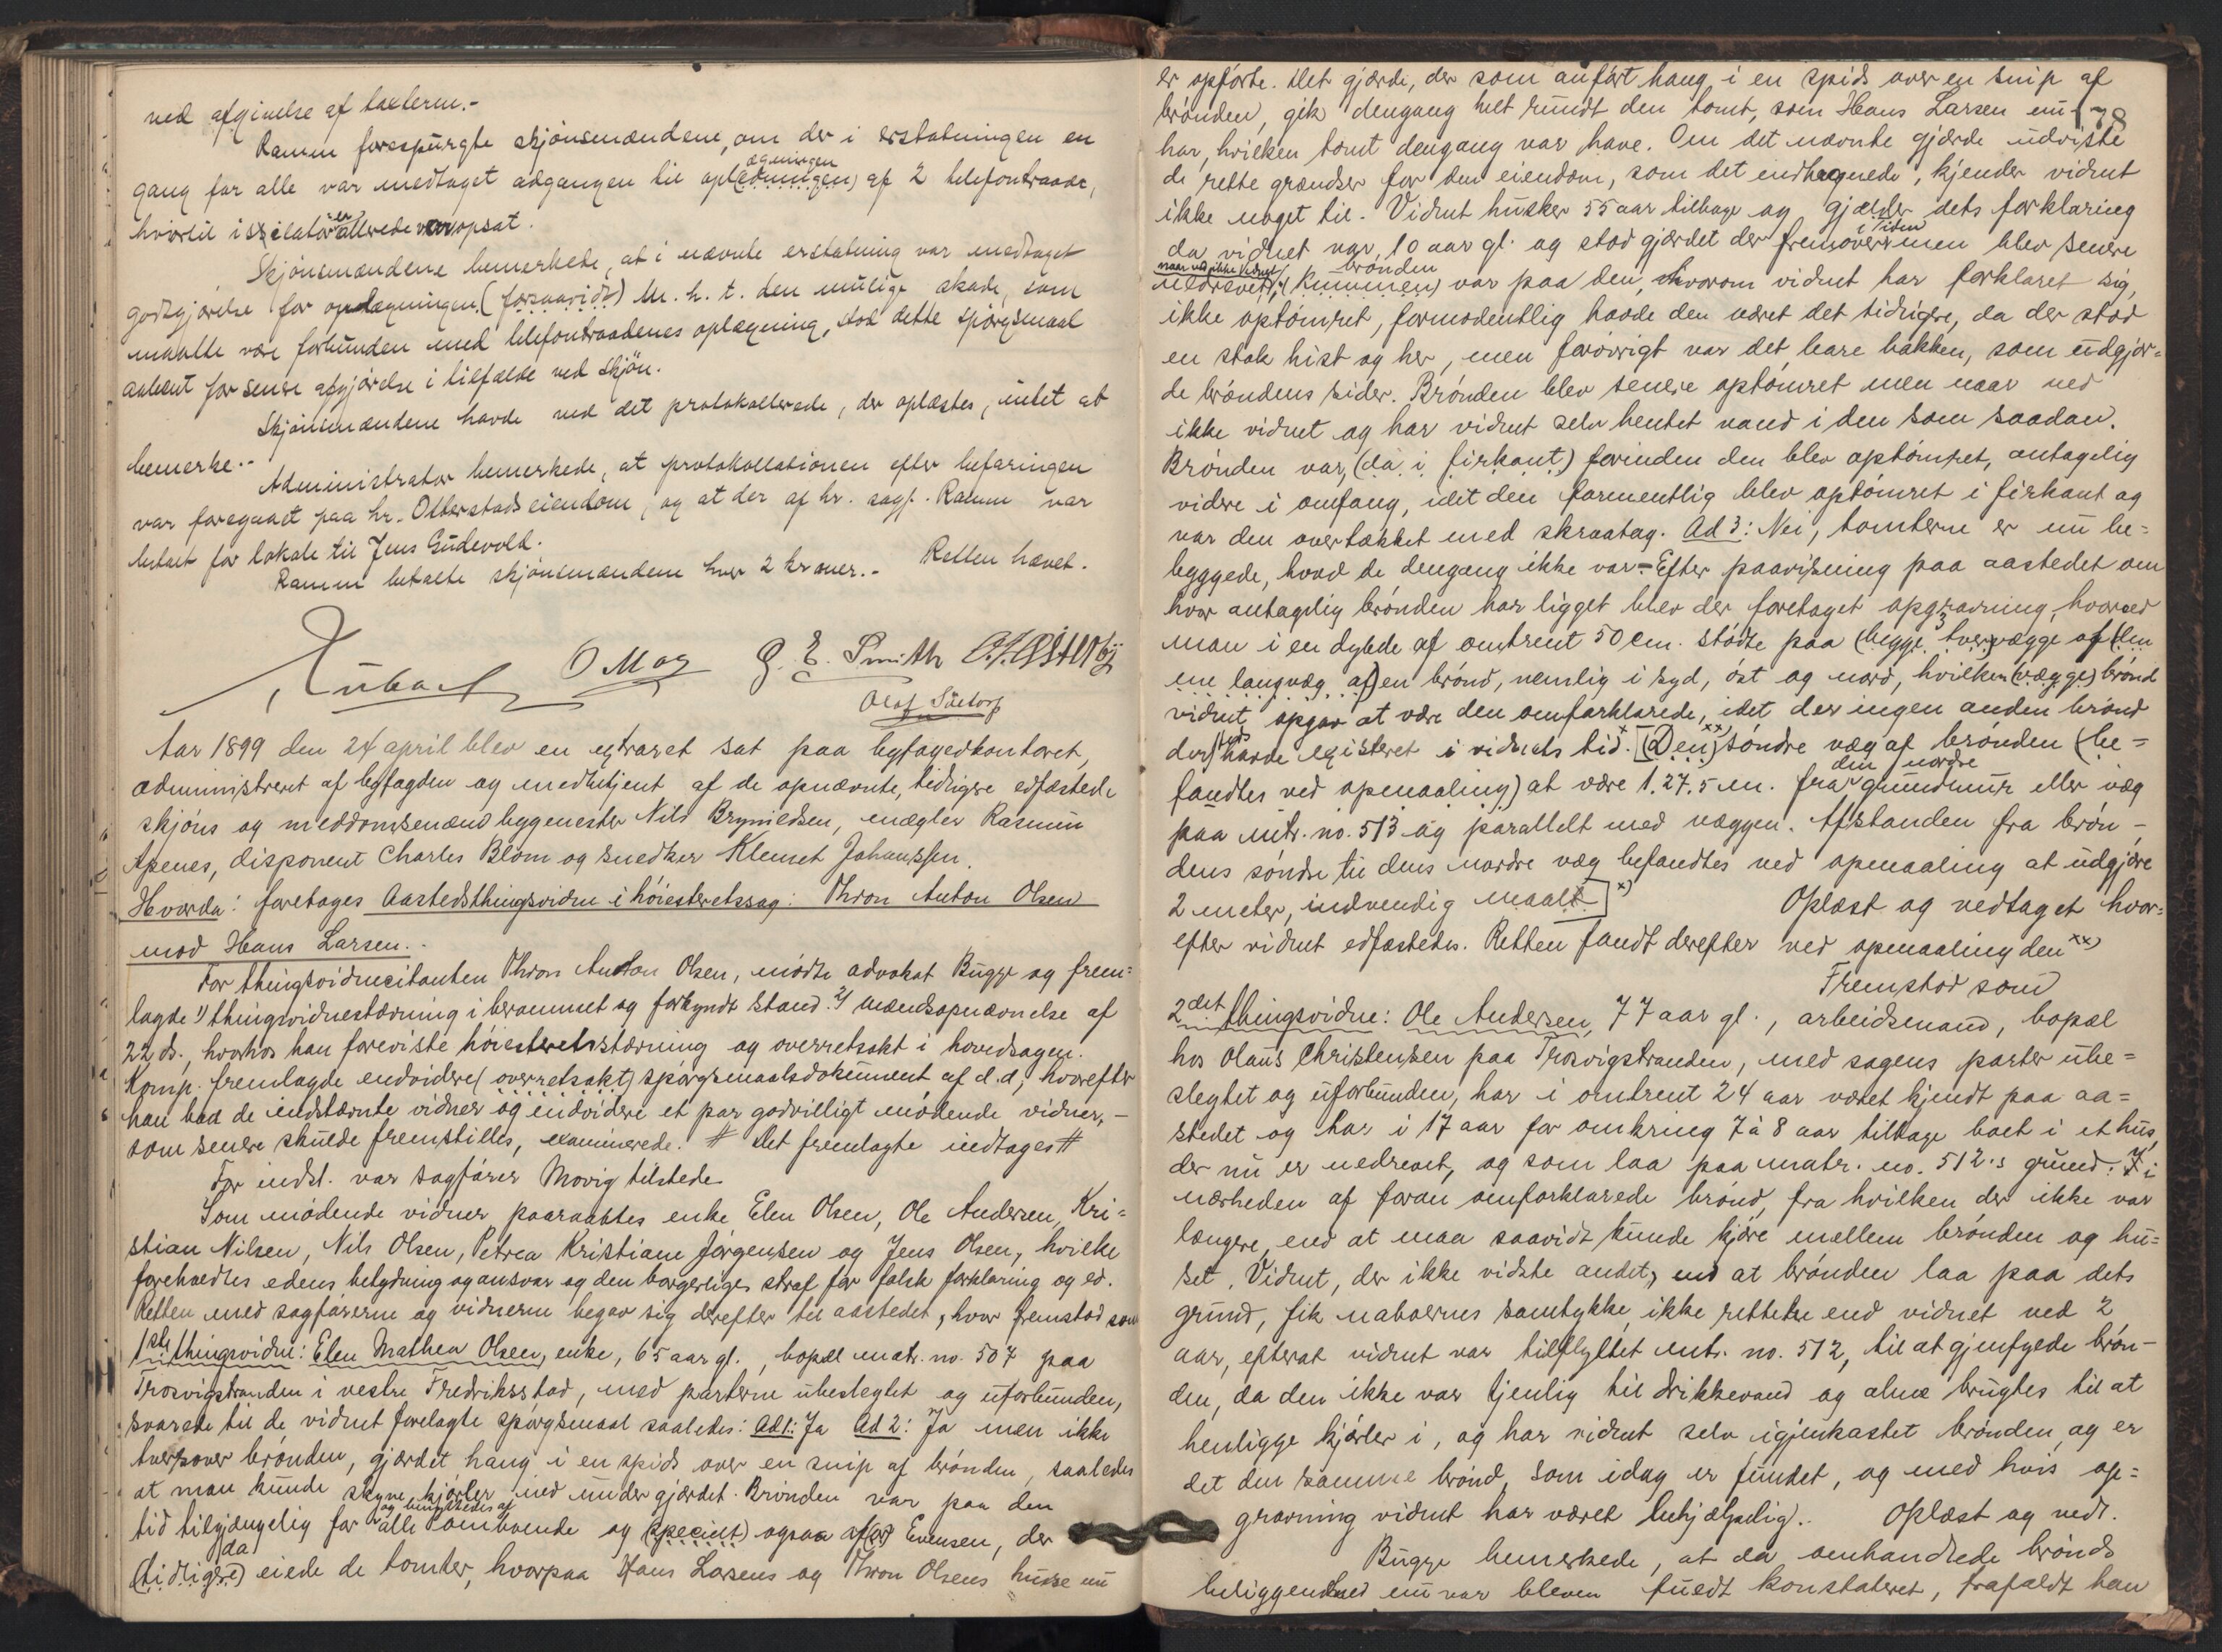 ved afgivelse af taxterne.-
Ramm forespurgte skjönsmændene, om der i erstatningen en
gang for alle var medtaget adgangen til opl(edningen) ægningen af 2 telefontraade,
hvortil isolatorer allerede var opsat.
Skjönsmændene bemerkede, at i nævnte erstatning var medtaget
godtgjörelse for oplægningen (forsaavidt) M. h. t. den mulige skade, som
maatte være forbunden med telefontraadenes oplægning, stod dette spörgsmaal
aabent for senere afgjörelse i tilfælde ved skjön.
Skjönsmændene havde ved det protokollerede, der oplæstes, intet at
bemerke.-
Administrator bemerkede, at protokollationen efter befaringen
var foregaaet paa hr. Otterstads eiendom, og at der af hr. sagf. Ramm var
betalt for lokale til Jens Gudevold.
Ramm betalte skjönsmændene hver 2 kroner.- Retten hævet.
O Moe G. E. Smith
Olaf
Aar 1899 den 24 april blev en extraret sat paa byfogedkontoret,
administreret af byfogden og medbetjent af de opnævnte, tidligere edfæstede
skjöns og meddomsmænd bygmester Nils Brynildsen, mægler Rasmus
Apenes, disponent Charles Blom og snedker Klemet Johanssen.
Hvorda: foretoges Aastedsthingsvidne i höiesteretssag: Thron Anton Olsen
mod Hans Larsen.-
For thingsvidnecitanten Thron Anton Olsen, mödte advokat Bugge og frem=
lagde 1) thingsvidnestævning i berammet og forkyndt stand. 2) mændsopnævnelse af
22 ds., hvorhos han foreviste höiesteretsstævning og overretsakt i hovedsagen.
Komp. fremlagde endvidere (overretsakt) spörgsmaalsdokument af d.d., hvorefter
han bad de indstævnte vidner og endvidere et par godvilligt mödende vidner,
som senere skulde fremstilles, examinerede. # Det fremlagte indtages #
For indst. var sagförer Morig tilstede
Som mödende vidner paaraabtes enke Elen Olsen, Ole Andersen, Kri=
stian Nilsen, Nils Olsen, Petrea Kristiane Jörgensen og Jens Olsen, hvilke
foreholdtes edens betydning og ansvar og den borgerlige straf for falsk forklaring og ed.
Retten med sagförerne og vidnerne begav sig derefter til aastedet, hvor fremstod som
1ste thingsvidne: Elen Mathea Olsen, enke, 65 aar gl., bopæl matr. no. 507 paa
Trosvigstranden i vestre Fredriksstad, med parterne ubeslegtet og uforbunden,
svarede til de vidnet forelagte spörgsmaal saaledes: Ad 1: Ja Ad 2: Ja men ikke
tversover brönden, gjærdet hang i en spids over en snip af brönden, saaledes
at man kunde skyve kjörler ned under gjærdet. Brönden var paa den
tid tilgjængelig for og benyttedes af alle omboende og (specielt) ogsaa af (en) Evensen, der
(tidligere) da eiede de tomter, hvorpaa Hans Larsens og Thron Olsens huse nu
178
er opförte. Det gjærde, der som anfört hang i en spids over en snip af
brönden, gik dengang helt rundt den tomt, som Hans Larsen nu
har, hvilken tomt dengang var have. Om det nævnte gjærde udviste
de rette grændser for den eiendom, som det indhegnede, kjender vidnet
ikke noget til. Vidnet husker 55 aar tilbage og gjælder dets forklaring
da vidnet var 10 aar gl. og stod gjærdet der fremover i tiden men blev senere
nedrevet, naar ved ikke vidnet (Kummen) brönden var paa den, hvorom vidnet har forklaret sig,
ikke optömret, formodentlig havde den været det tidligere, da der stod
en stok hist og her, men forövrigt var det bare bakken, som udgjor=
de bröndens sider. Brönden blev senere optömret men naar ved
ikke vidnet og har vidnet selv hentet vand i den som saadan.
Brönden var, (da i firkant) forinden den blev optömret, antagelig
videre i omfang, idet den formentlig blev optömret i firkant og
var den overtækket med skraatag. Ad 3: Nei, tomterne er nu be=
byggede, hvad de dengang ikke var.- Efter paavisning paa aastedet om
hvor antagelig brönden har ligget blev der foretaget opgravning, hvorved
man i en dybde af omtrent 50 cm. stödte paa (begge tver) 3 vægge af (den
ene langvæg af) en brönd, nemlig i syd, öst og nord, hvilken (vægge) brönd
vidnet opgav at være den omforklarede, idet der ingen anden brönd
der havde existeret i vidnets tid. [(Den) söndre væg af brönden (be=
fandtes ved opmaaling) at være 1.27.5 m. fra den nordre grundmur eller væg
paa mtr. no. 513 og parallelt med væggen. Afstanden fra brön-
dens söndre til dens nordre væg befandtes ved opmaaling at udgjöre
2 meter, indvendig maalt] x) Oplæst og vedtaget hvor=
efter vidnet edfæstedes. Retten fandt derefter ved opmaaling den xx)
Fremstod som
2det thingsvidne: Ole Andersen, 77 aar gl., arbeidsmand, bopæl
hos Olaus Christensen paa Trosvigstranden, med sagens parter ube=
slegtet og uforbunden, har i omtrent 24 aar været kjendt paa aa=
stedet og har i 17 aar for omkring 7 à 8 aar tilbage boet i et hus,
der nu er nedrevet, og som laa paa matr. no. 512.s grund i
nærheden af foran omforklarede brönd, fra hvilken der ikke var
længere, end at maa saavidt kunde kjöre mellem brönden og hu=
set. Vidnet, der ikke vidste andet, end at brönden laa paa dets
grund, fik naboernes samtykke, ikke rettere end vidnet ved 2
aar, efterat vidnet var tilflyttet mtr. no. 512, til at gjenfylde brön-
den, da den ikke var tjenlig til drikkevand og alene brugtes til at
henligge kjörler i, og har vidnet selv igjenkastet brönden, og er
det den samme brönd, som idag er fundet, og med hvis op=
gravning vidnet har været behjælpelig. Oplæst og vedt.
Bugge bemerkede, at da omhandlede brönds
beliggenhed nu var bleven fuldt konstateret, frafaldt han